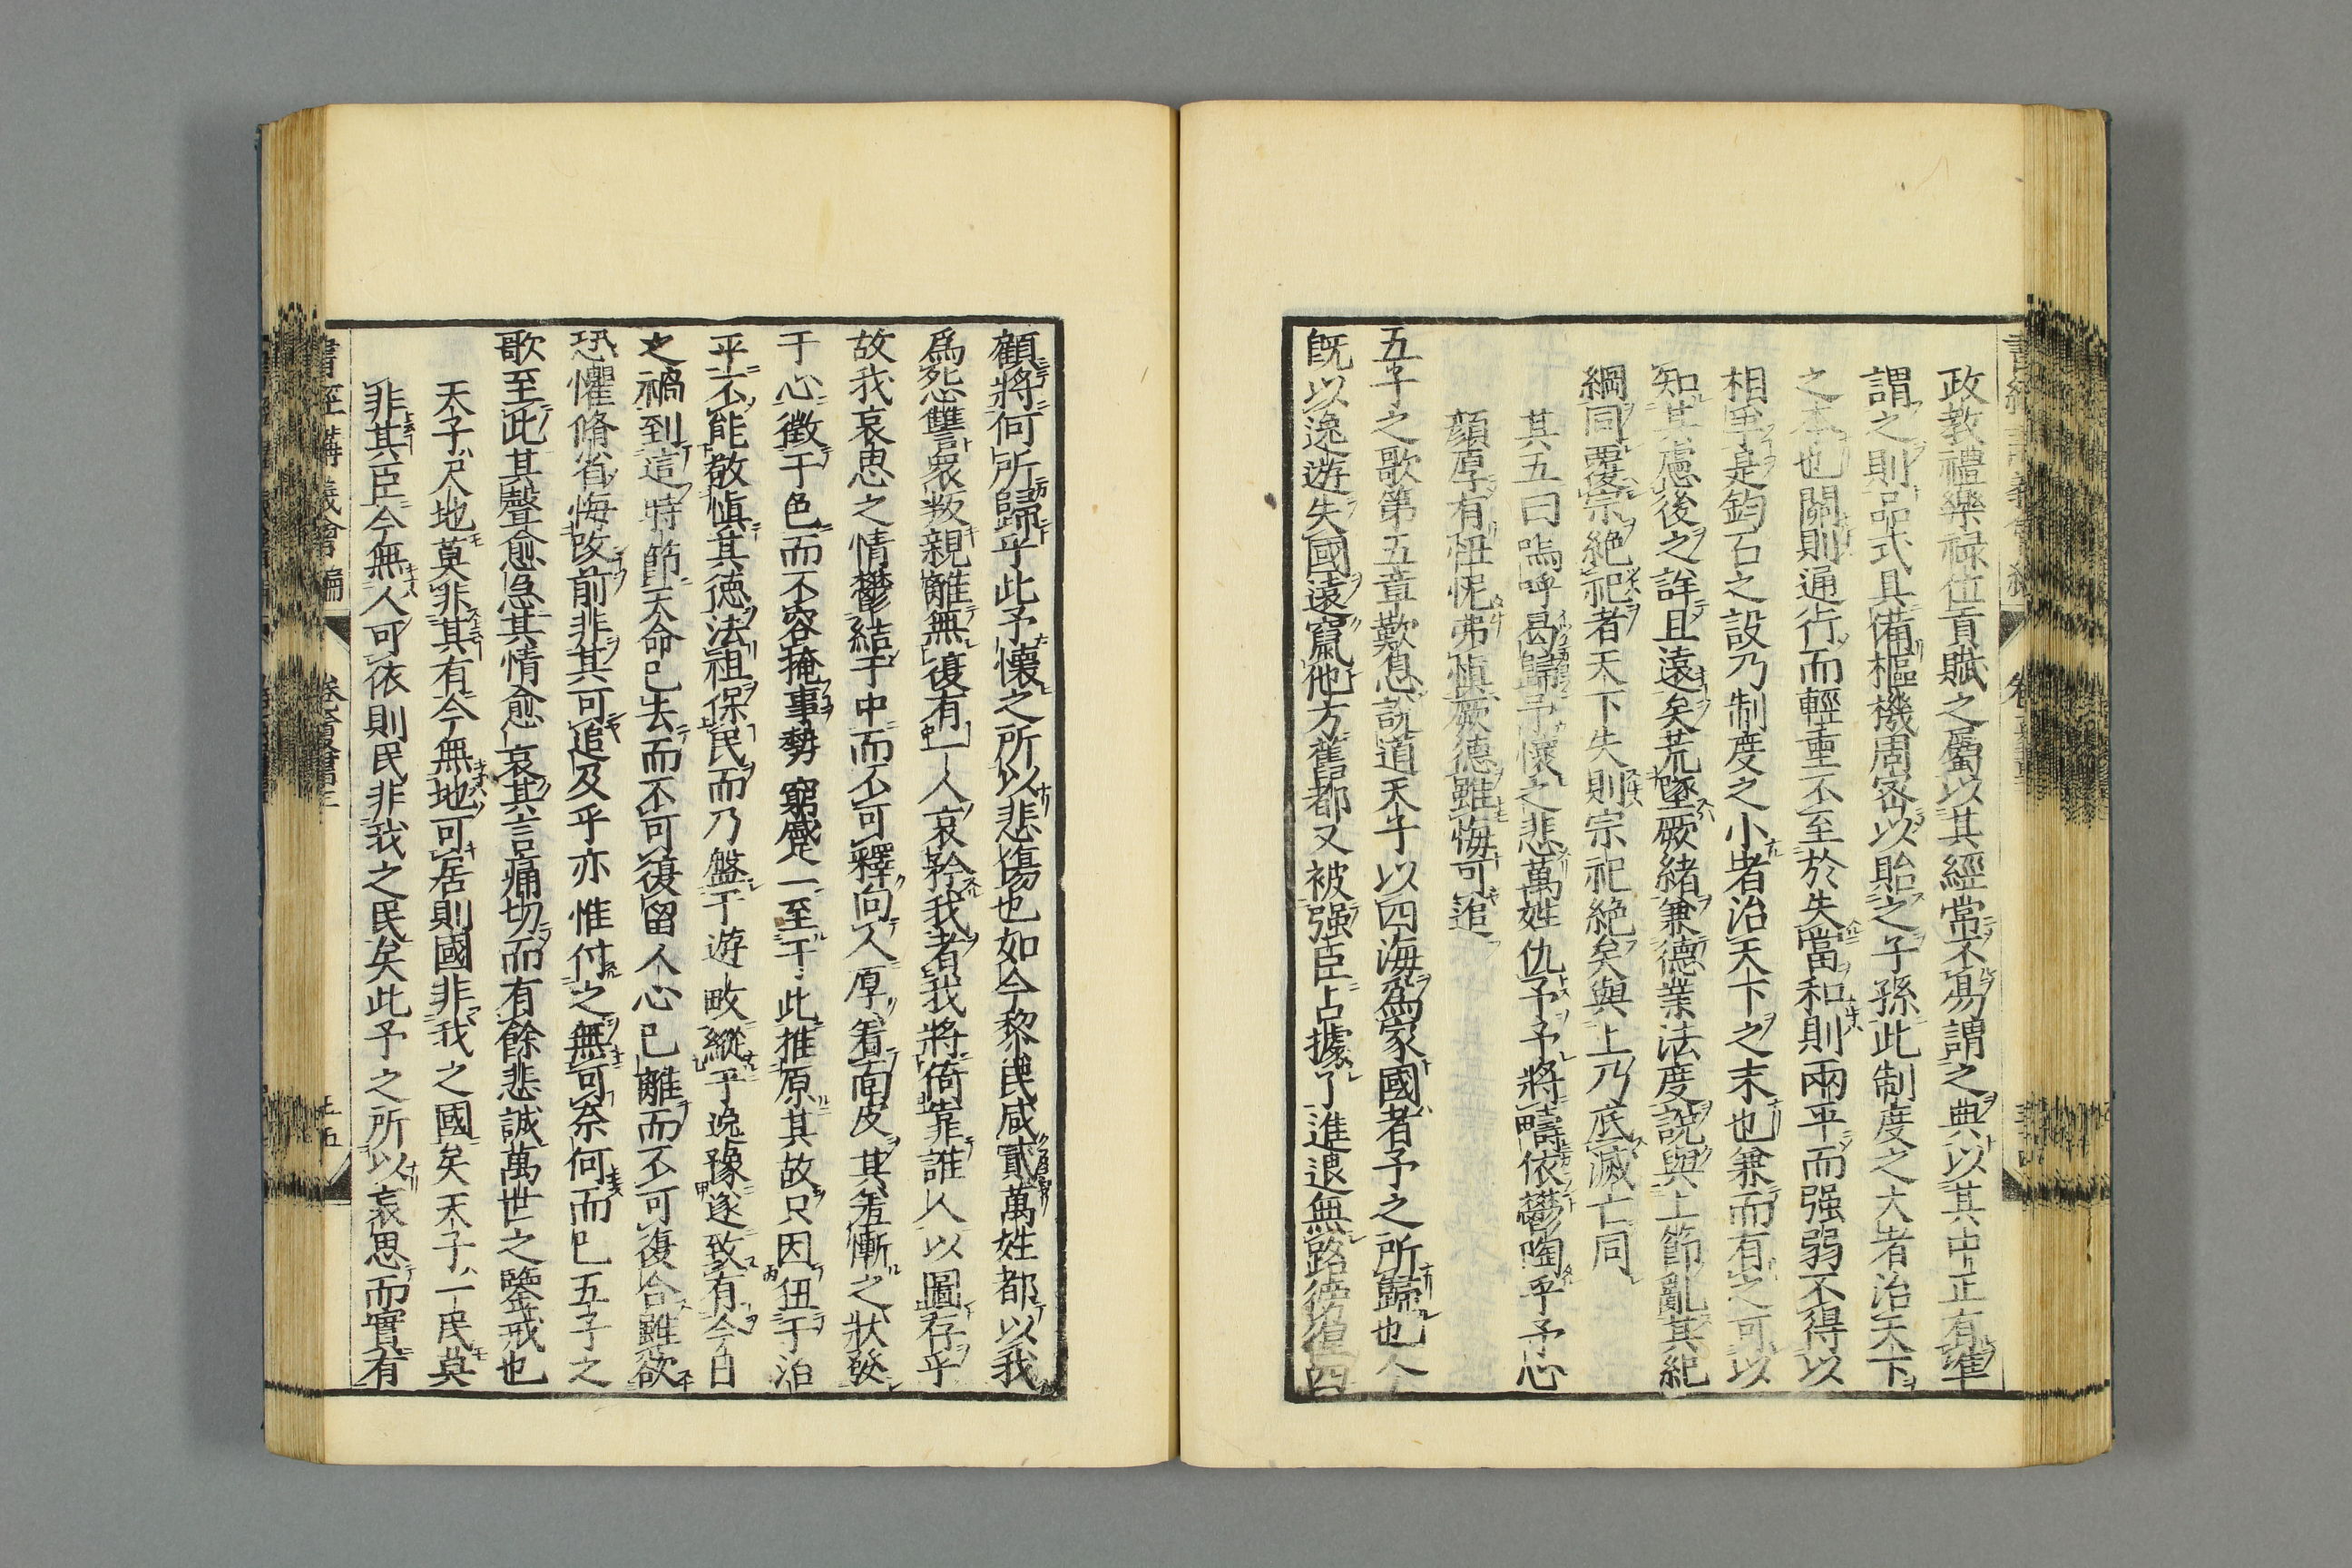 政教禮樂祿位貢賦之屬以其經常不易謂之典以其中正有準
謂之則品式具備樞機周密以貽之子孫此制度之大者治天下
之本也關則通行而輕重不至於失當和則兩平而强弱不得以
相爭是鈞石之設乃制度之小者治天下之末也兼而有之可以
知其慮後之詳且遠矣荒墜厥緒兼德業法度說與上節亂其紀
綱同覆宗絶祀者天下失則宗祀絶矣與上乃底滅亡同
其五曰嗚呼曷歸予懷之悲萬姓仇予予將疇依鬱陶乎予心
顏厚有忸怩弗愼厥德雖悔可追
五子之歌第五章歎息說道天子以四海爲家國者予之所歸也今
旣以逸遊失國遠竄他方舊都又被强臣占據了進退無路徬徨四
顧將何所歸乎此予懷之所以悲傷也如今黎民咸貳萬姓都以我
爲怨讐衆叛親離無復有一人哀矜我者我將倚靠誰人以圖存乎
故我哀思之情鬱結于中而不可釋向人厚着面皮其羞慚之狀發
于心徵于色而不容掩事勢窮蹙一至于此推原其故只因狃于治
平不能敬愼其德法祖保民而乃盤于遊畋縱乎逸豫遂致有今日
之禍到這時節天命已去而不可復留人心已離而不可復合雖欲
恐懼脩省悔改前非其可追及乎亦惟付之無可奈何而已五子之
歌至此其聲愈急其情愈哀其言痛切而有餘悲誠萬世之鑒戒也
天子尺地莫非其有今無地可居則國非我之國矣天子一民莫
非其臣今無人可依則民非我之民矣此予之所以哀思而實有
書經講義會編
卷
十五